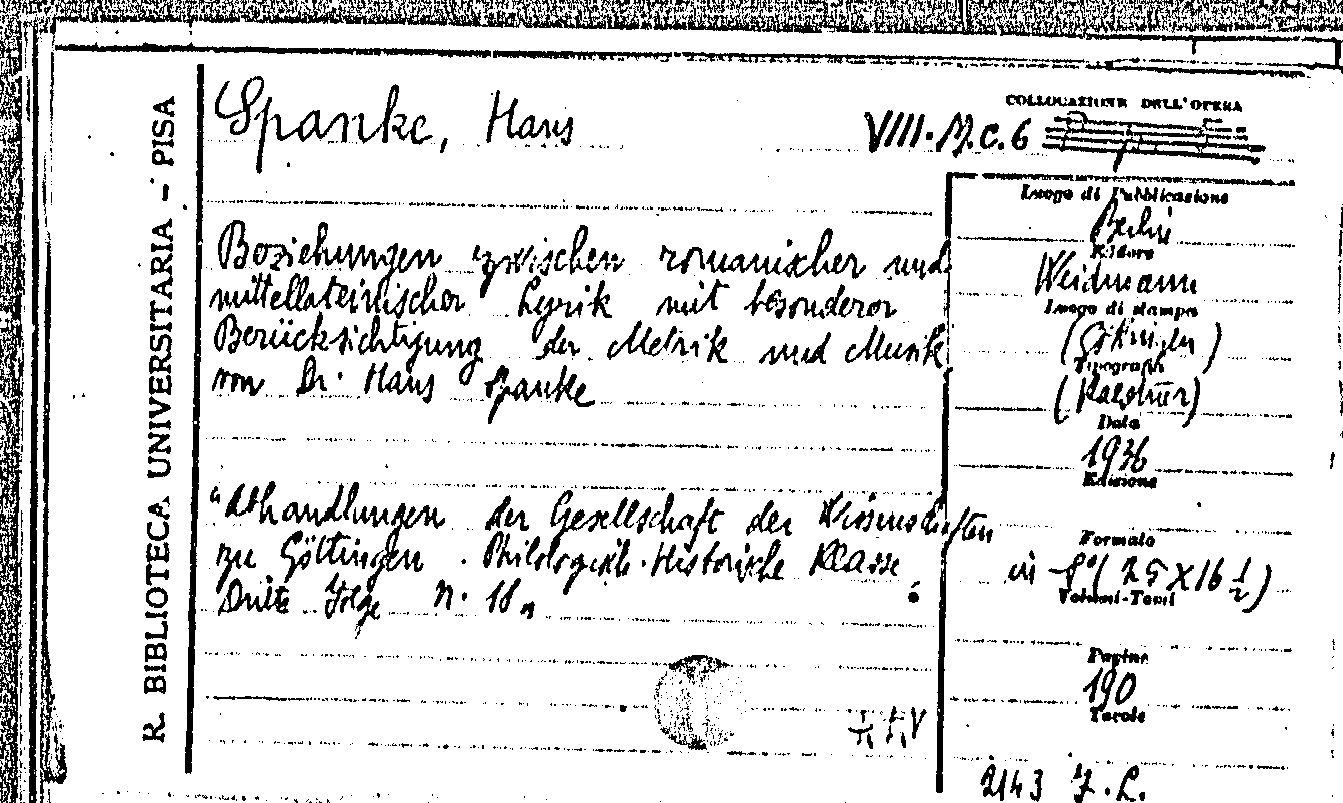 R. BIBLIOTECA UNIVERSITARIA - PISA
Spanke, Hans
COLLOCAZIONE DELL'OPERA
VIII. M.C.6
Beziehungen zwischen romanischer und
mittellateinischer Lyrik mit besonderer
Berücksichtigung der Metrik und Musik
von Dr. Hans Spanke
"Abhandlungen der Gesellschaft der Wissenschaften
zu Göttingen. Philologisch-Historische Klasse.
Dritte Folge N. 18"
Luogo di Pubblicazione
Berlin
Editore
Weidmann
Luogo di stampa
(Göttingen)
Tipografia
(Kaestner)
Data
1936
Edizione
Formato
in 8° (25 X 16 1/2)
Volumi-Tomi
Pagine
190
Tavole
2143 F.L.